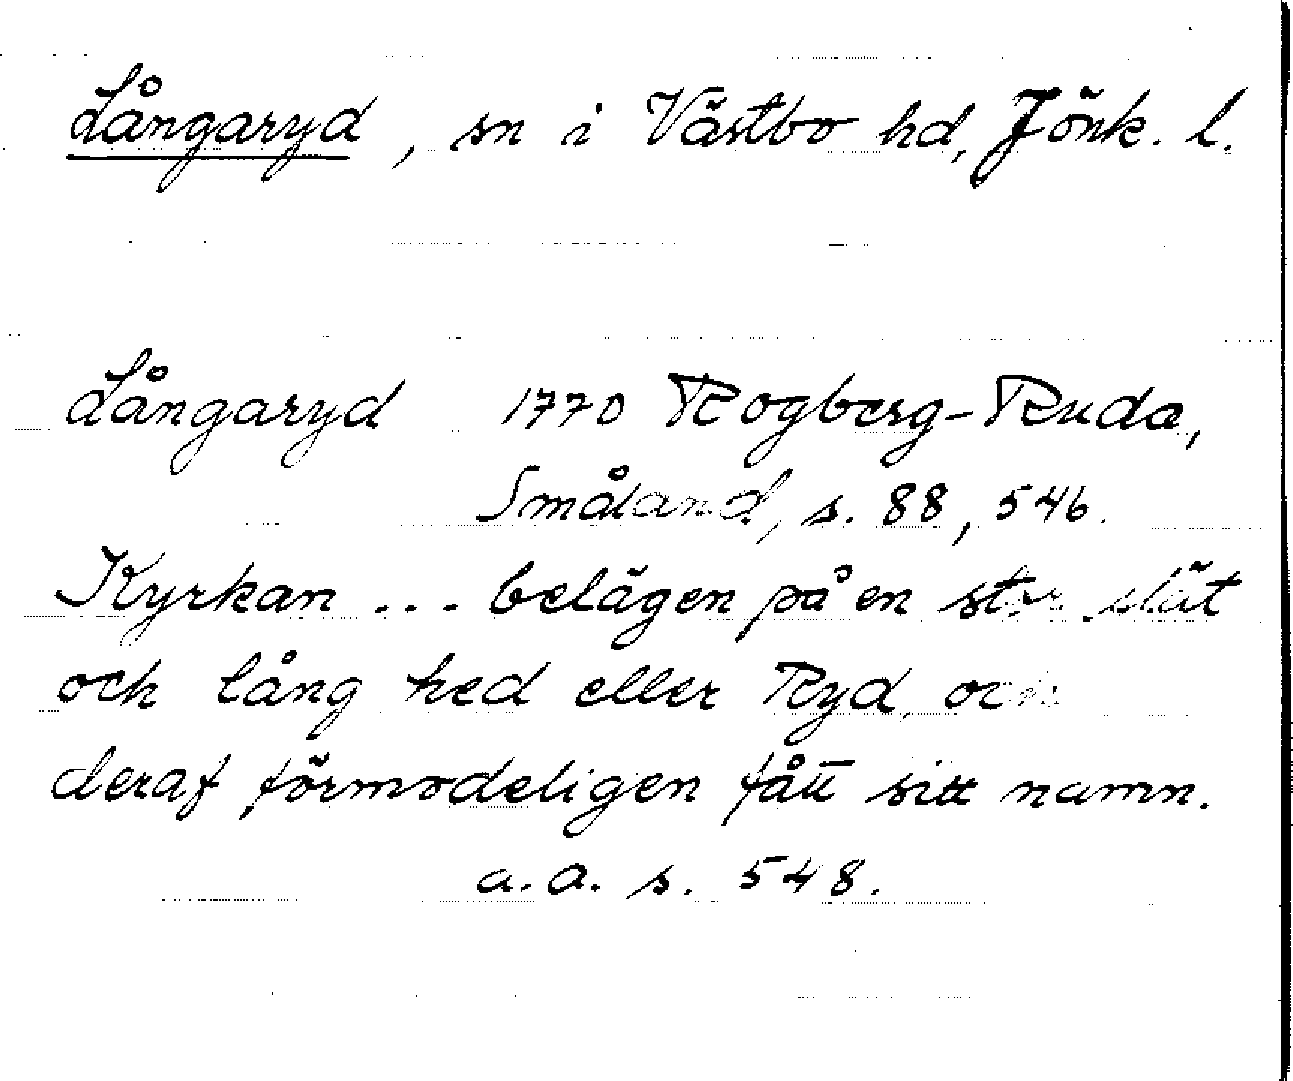 Långaryd, sn i Västbo hd, Jönk. l.
Långaryd 1770 Rogberg-Ruda,
Småland, s. 88, 546.
Kyrkan ... belägen på en stor slät
och lång hed eller Ryd, och
deraf förmodeligen fått sitt namn.
a.a. s. 548.